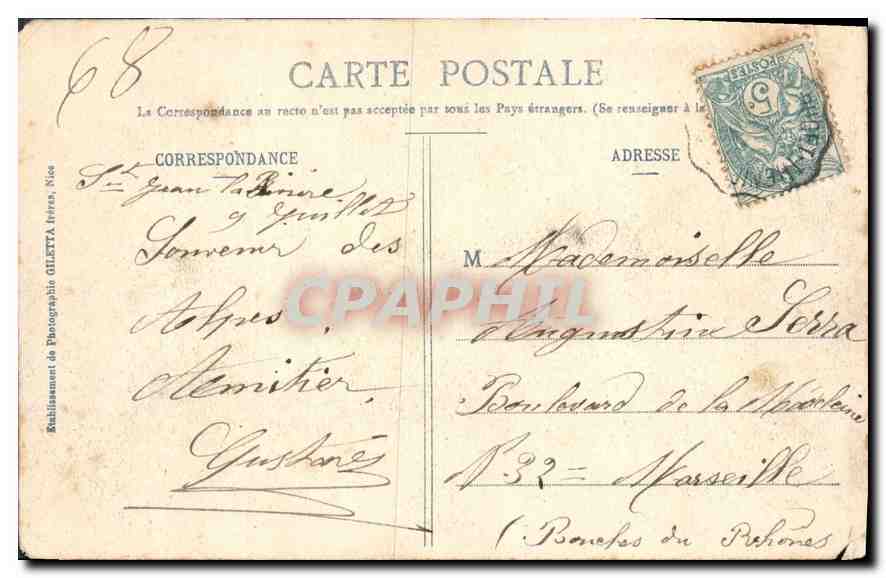 68
CARTE POSTALE
La Correspondance au recto n'est pas acceptée par tous les Pays étrangers. (Se renseigner à la
CORRESPONDANCE
St Jean la Rivière
9 Juillet
Souvenir des
Alpes.
ADRESSE
M Mademoiselle
Augustine Serra
Boulevard de la Madeleine
N. 32 = Marseille
(Bouches du Rhônes
POSTES
5
Etablissement de Photographie GILETTA frères, Nice
CPAPHIL